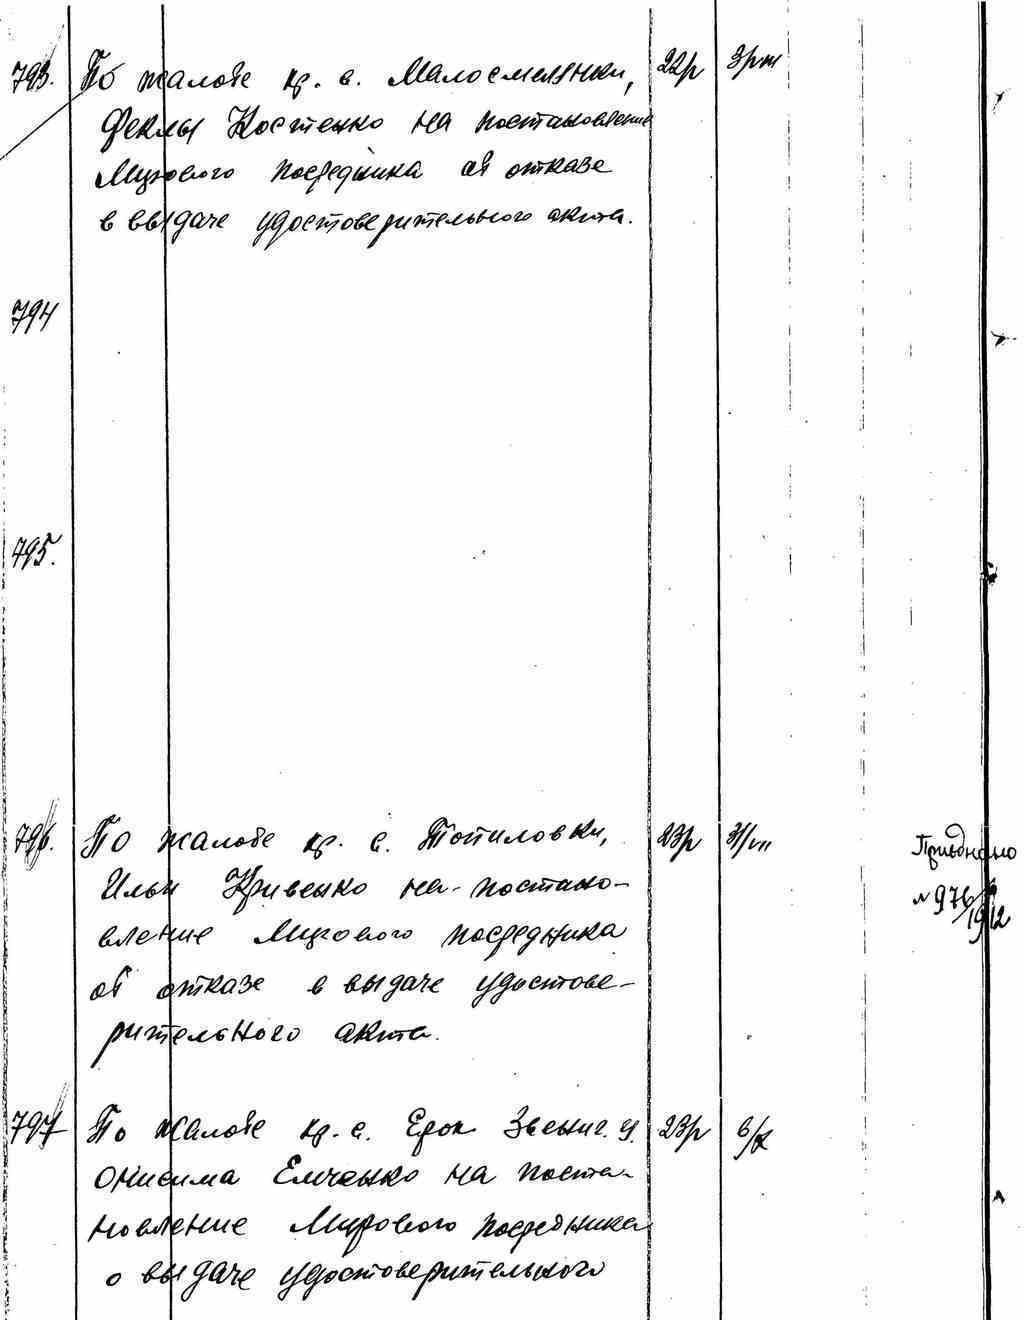 793. По жалобе кр. с. Малосмелянки, 22р
Феклы Костенко на постановление
Мирового посредника об отказе
в выдаче удостоверительного акта.
794
795.
796. По жалобе кр. с. Топиловки, 23р
Ильи Кривенко на постано-
вление Мирового посредника
об отказе в выдаче удостове-
рительного акта.
№ 976
1912
797 По жалобе кр. с. Ерок Звениг. у. 23р
Онисима Емченко на поста-
новление Мирового посредника
о выдаче удостоверительного